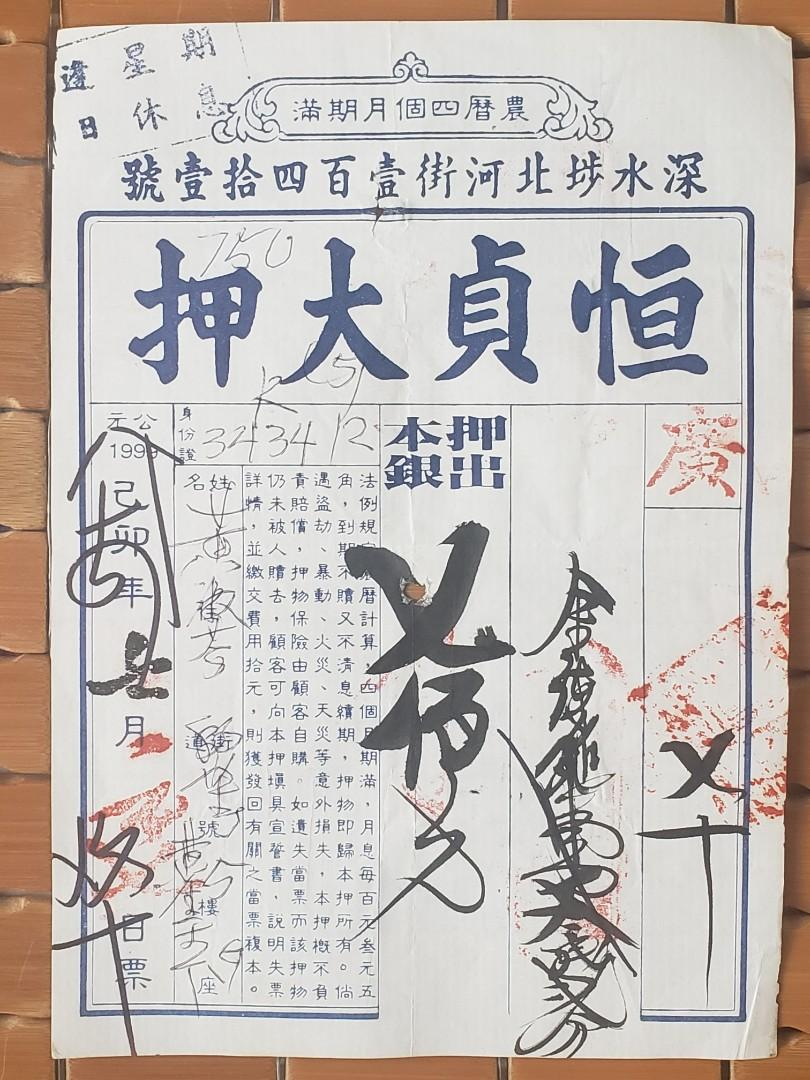 逢星期
日休息
農曆四個月期滿
深水埗北河街壹百四拾壹號
恒貞大押
750
廣
〤十
押出
本銀
〤佰元
法例規定按曆計算，四個月期滿，月息每百元叁元五
角，到期不贖又不清息續期，押物即歸本押所有。倘
遇盜劫、暴動、火災、天災等意外損失，本押概不負
責賠償，押物保險由顧客自購。如遺失當票而該押物
仍未被人贖去，顧客可向本押填具宣誓書，說明失票
詳情，並繳交費用拾元，則獲發回有關之當票複本。
身份證
343412
姓名
黃
街道
號
樓
座
公元
1999
己卯年
七月
日票